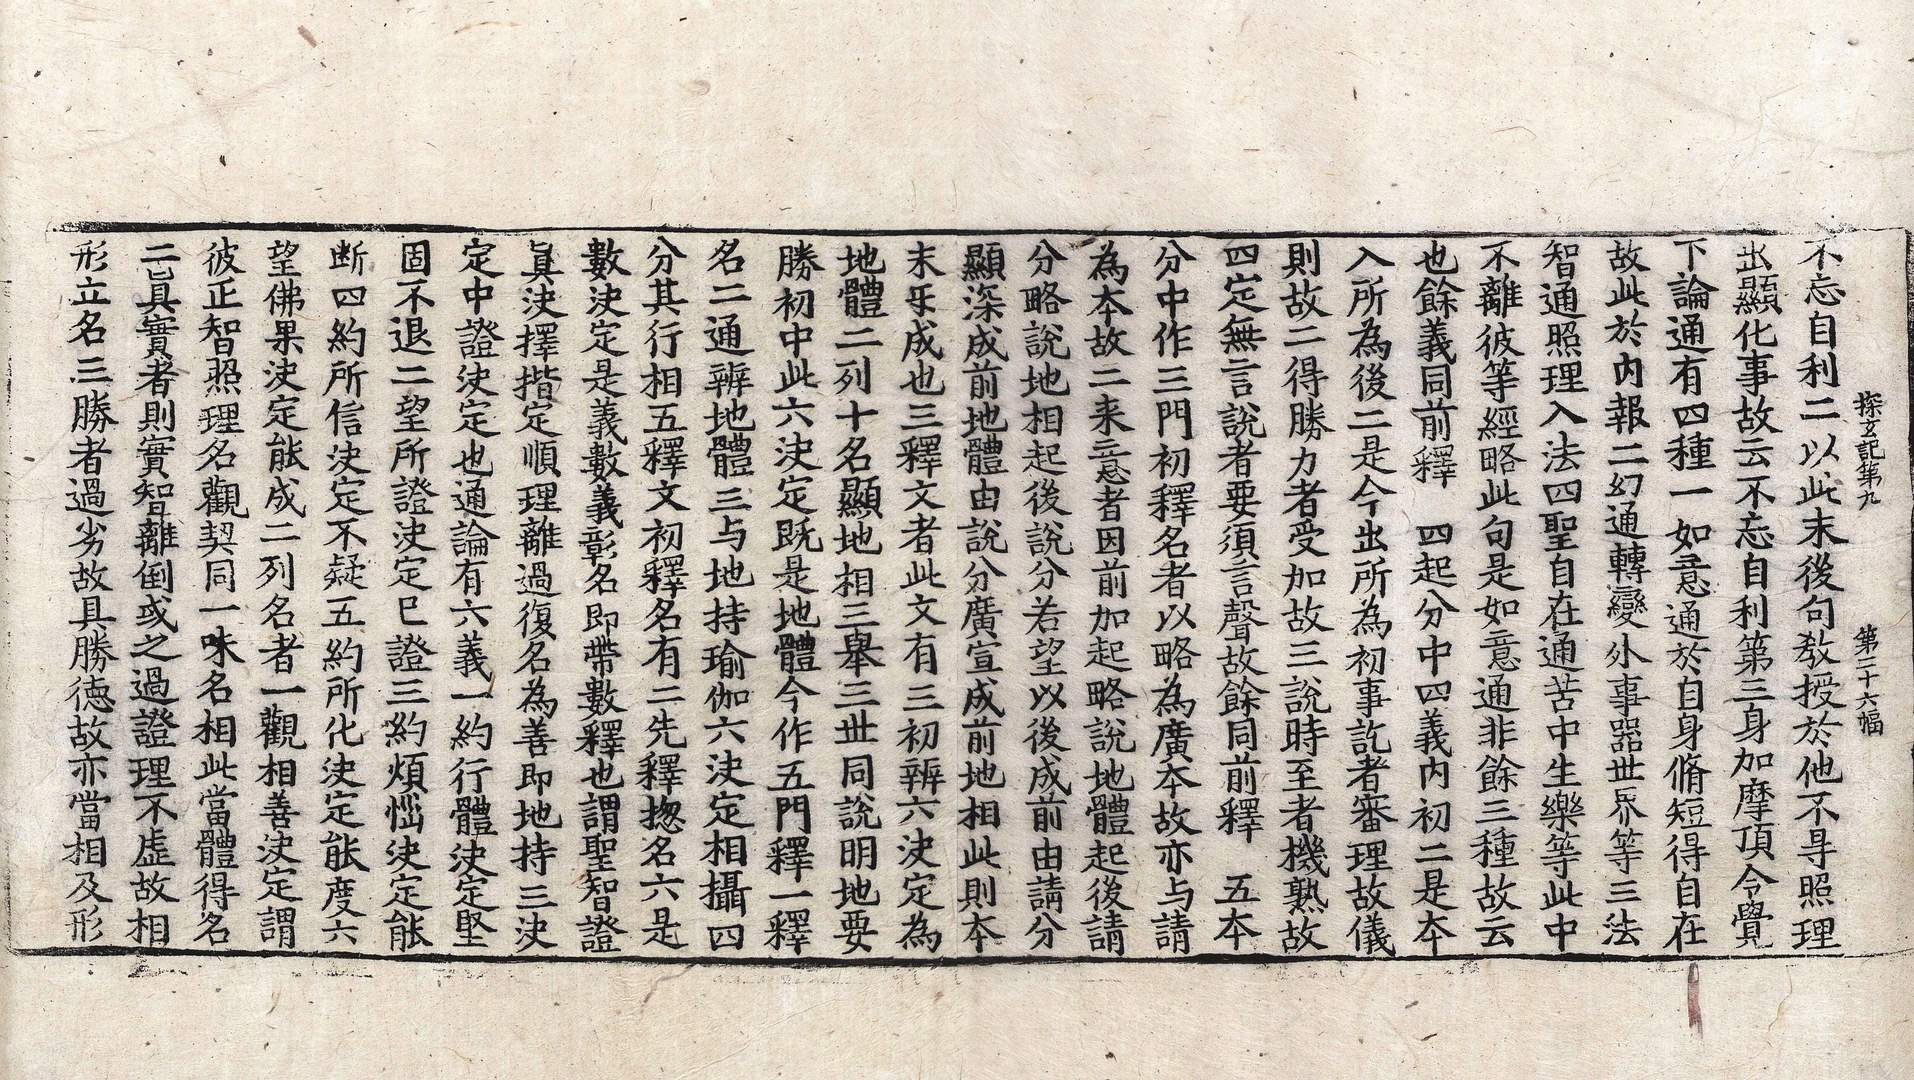 探玄記第九 第二十六幅
不忘自利二以此末後句教授於他不㝵照理
出顯化事故云不忘自利第三身加摩頂令覺
下論通有四種一如意通於自身脩短得自在
故此於內報二幻通轉變外事器世界等三法
智通照理入法四聖自在通苦中生樂等此中
不離彼等經略此句是如意通非餘三種故云
也餘義同前釋 四起分中四義內初二是本
入所為後二是今出所為初事訖者審理故儀
則故二得勝力者受加故三說時至者機熟故
四定無言說者要須言聲故餘同前釋 五本
分中作三門初釋名者以略為廣本故亦与請
為本故二来意者因前加起略說地體起後請
分略說地相起後說分若望以後成前由請分
顯深成前地體由說分廣宣成前地相此則本
末㸦成也三釋文者此文有三初辨六決定為
地體二列十名顯地相三舉三世同說明地要
勝初中此六決定既是地體今作五門釋一釋
名二通辨地體三与地持瑜伽六決定相攝四
分其行相五釋文初釋名有二先釋揔名六是
數決定是義數義彰名即帶數釋也謂聖智證
真決擇揩定順理離過復名為善即地持三決
定中證決定也通論有六義一約行體決定堅
固不退二望所證決定已證三約煩惱決定能
断四約所信決定不疑五約所化決定能度六
望佛果決定能成二列名者一觀相善決定謂
彼正智照理名觀契同一味名相此當體得名
二真實者則實智離倒或之過證理不虛故相
形立名三勝者過劣故具勝德故亦當相及形